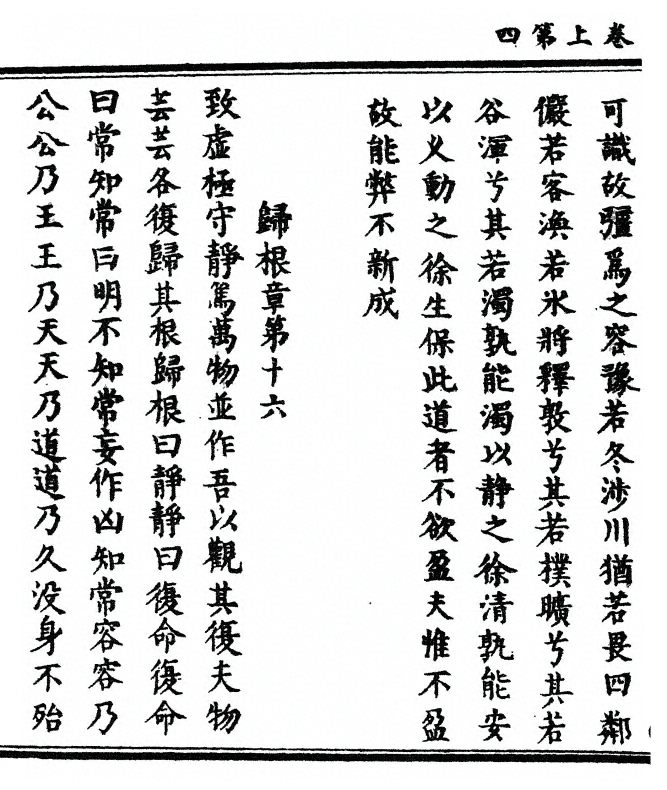 卷上第四
可識故彊爲之容豫若冬涉川猶若畏四鄰
儼若客渙若氷將釋敦兮其若樸曠兮其若
谷渾兮其若濁孰能濁以静之徐清孰能安
以乂動之徐生保此道者不欲盈夫惟不盈
故能弊不新成
歸根章第十六
致虛極守靜篤萬物並作吾以觀其復夫物
芸芸各復歸其根歸根曰靜靜曰復命復命
曰常知常曰明不知常妄作凶知常容容乃
公公乃王王乃天天乃道道乃久没身不殆